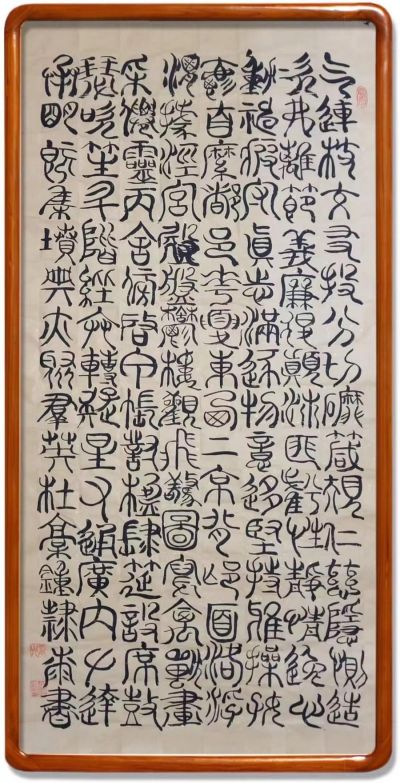 气連枝交友投分切磨箴規仁慈隱惻造
次弗離節義廉退顛沛匪虧性靜情逸心
動神疲守真志滿逐物意移堅持雅操好
爵自縻都邑華夏東西二京背邙面洛浮
渭據涇宮殿盤鬱樓觀飛驚圖寫禽獸畫
采僊靈丙舍傍啓甲帳對楹肆筵設席鼓
瑟吹笙升階弁轉疑星右通廣內左達
承明既集墳典亦聚羣英杜稾鍾隸漆書